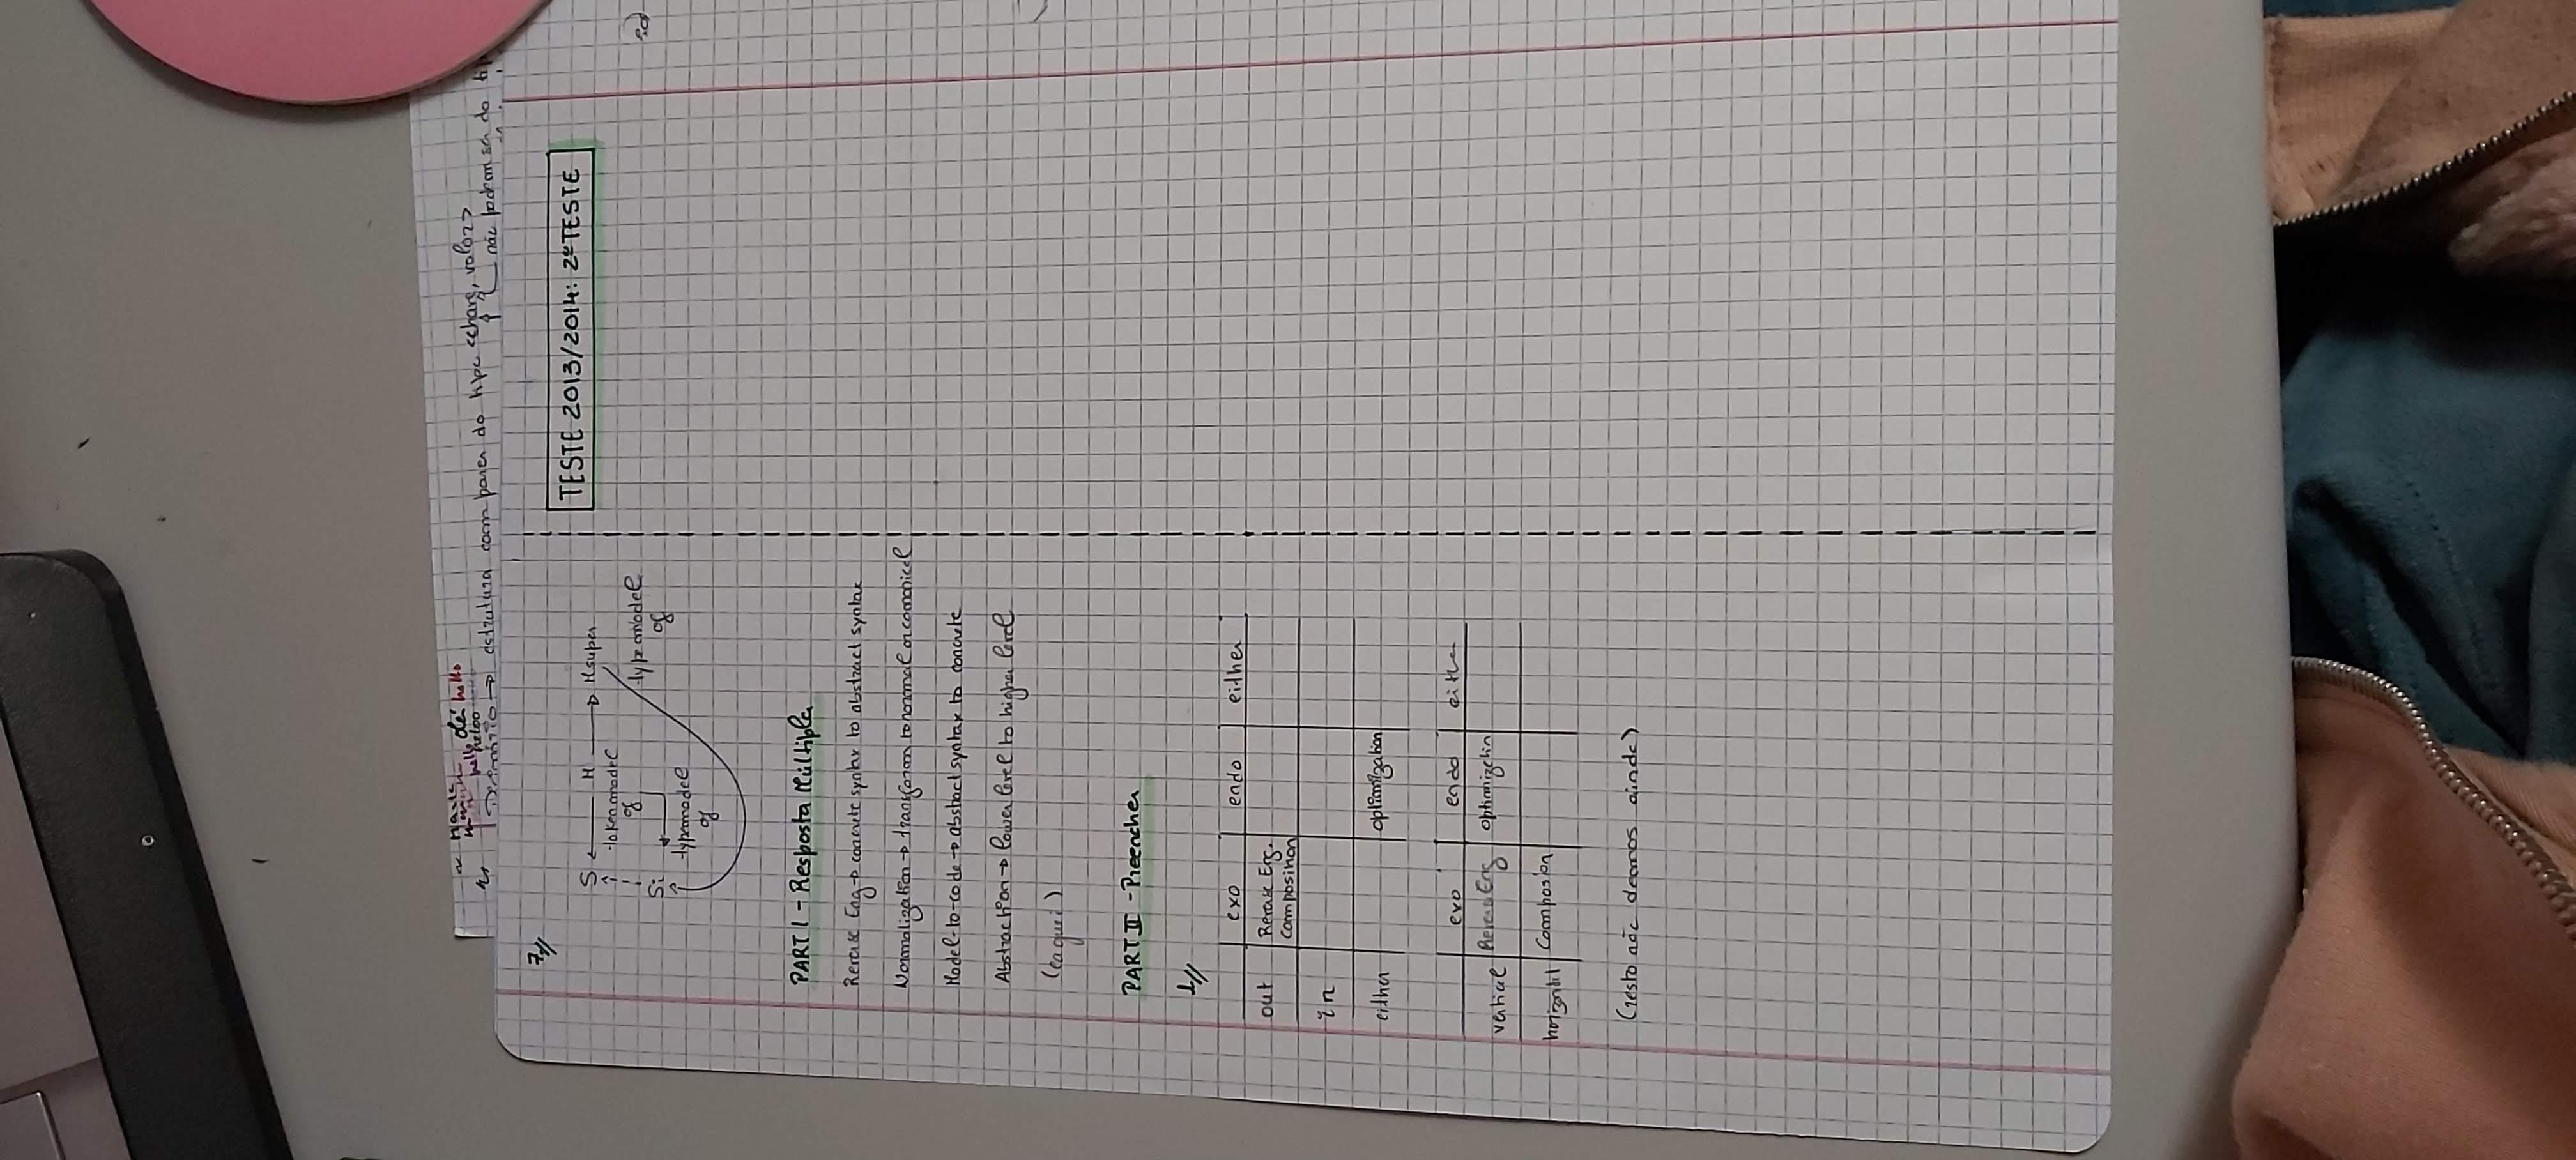 estrutura com pares do tipo <chave, valor>
7//
S H Msuper
tokenmodel of
typemodel of
Si
typemodel of
PART I - Resposta Múltipla
Reverse Eng → concrete syntax to abstract syntax
Normalization → transform to normal or canonical
Model-to-code → abstract syntax to concrete
Abstraction → lower level to higher level
PART II - Preencher
1//
exo endo either
out Reverse Eng. Composition
in
either optimization
exo endo either
vertical Reverse Eng optimization
horizontal Composion
(resto não demos ainda)
TESTE 2013/2014: 2º TESTE